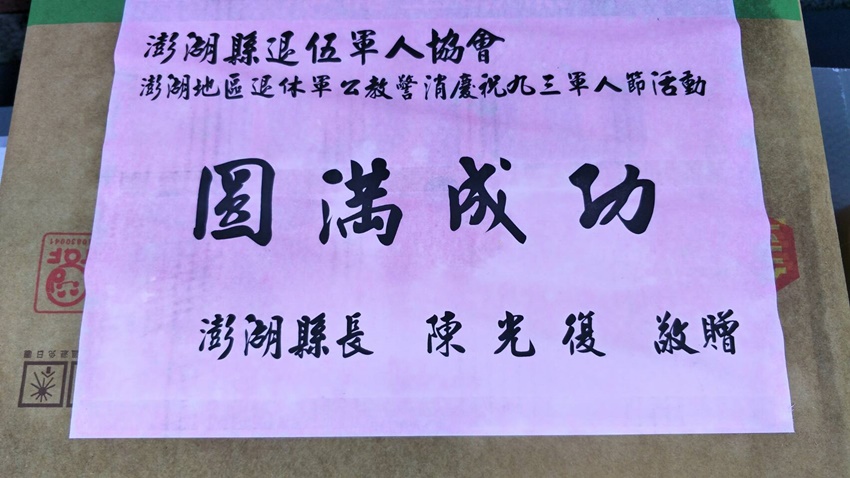 澎湖縣退伍軍人協會
澎湖地區退休軍公教警消慶祝九三軍人節活動
圓滿成功
澎湖縣長 陳光復 敬贈